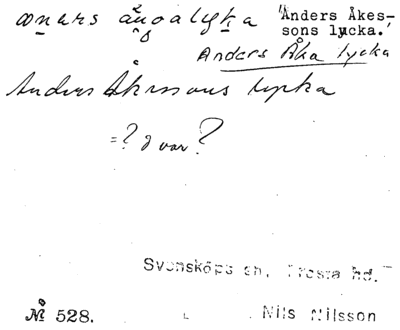 'Anders Åkes-
sons lycka.'
Anders Åka lycka
Anders Åkessons lycka
=? d var?
Svensköps sn, Frosta hd.
Nº 528. Nils Nilsson